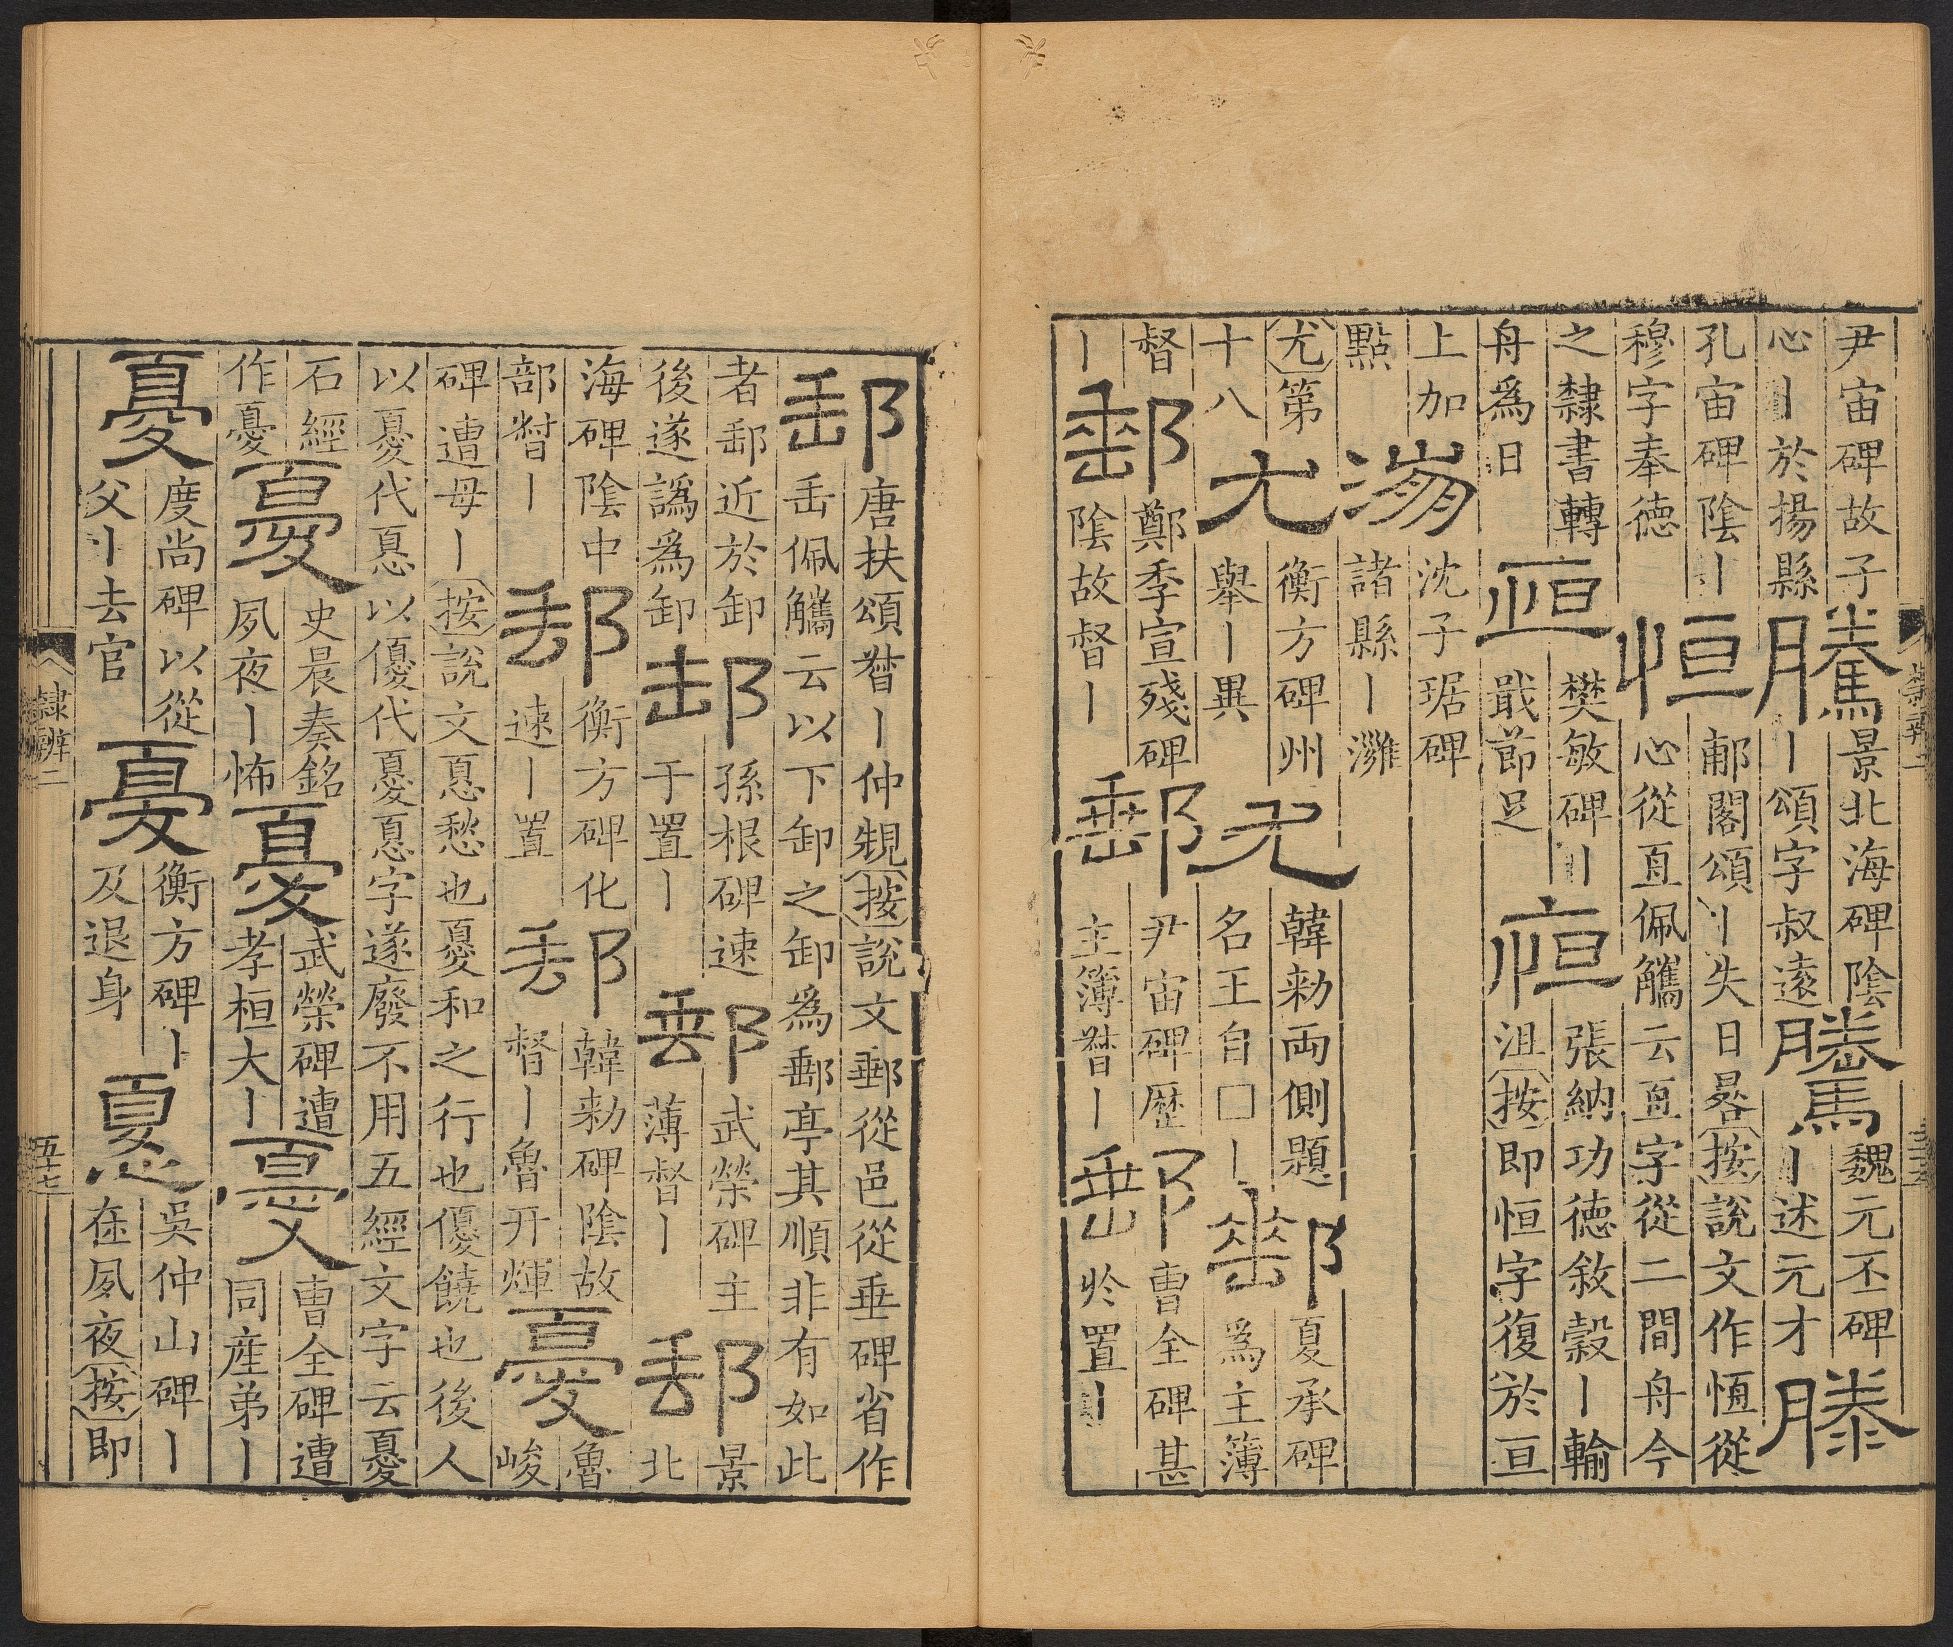 尹宙碑故子
心丨於揚縣
騰
景北海碑陰
丨頌字叔遠
騰
魏元丕碑
丨述元才
滕
孔宙碑陰丨
穆字奉徳
恒
郙閣頌丨失日晷按說文作恆從
心從亘佩觿云亘字從二間舟今
之隸書轉
舟為日
恒
樊敏碑丨
戢節足
恒
張納功徳敘穀丨輪
沮按即恒字復於亘
上加
點
漰
沈子琚碑
諸縣丨灉
尤第
十八
尤
衡方碑州
舉丨異
尤
韓勑兩側題
名王自□丨
郵
夏承碑
為主簿
督
丨
郵
鄭季宣殘碑
陰故督丨
郵
尹宙碑歴
主簿督丨
郵
曹全碑甚
於置丨
郵
唐扶頌督丨仲䂓按說文郵從邑從垂碑省作
缶缶佩觿云以下卸之卸為郵亭其順非有如此
者郵近於卸
後遂譌為卸
郵
孫根碑速
于置丨
郵
武榮碑主
薄督丨
郵
景北
海碑陰中
部督丨
郵
衡方碑化
速丨置
郵
韓勑碑陰故
督丨魯开煇
憂
魯峻
碑遭母丨按說文㥑愁也憂和之行也優饒也後人
以憂代㥑以優代憂㥑字遂廢不用五經文字云憂
石經
作憂
憂
史晨奏銘
夙夜丨怖
憂
武榮碑遭
孝桓大丨
憂
曹全碑遭
同産弟丨
憂
度尚碑以從
父丨去官
憂
衡方碑丨
及退身
憂
吳仲山碑丨
在夙夜按即
隸辨二
五十七